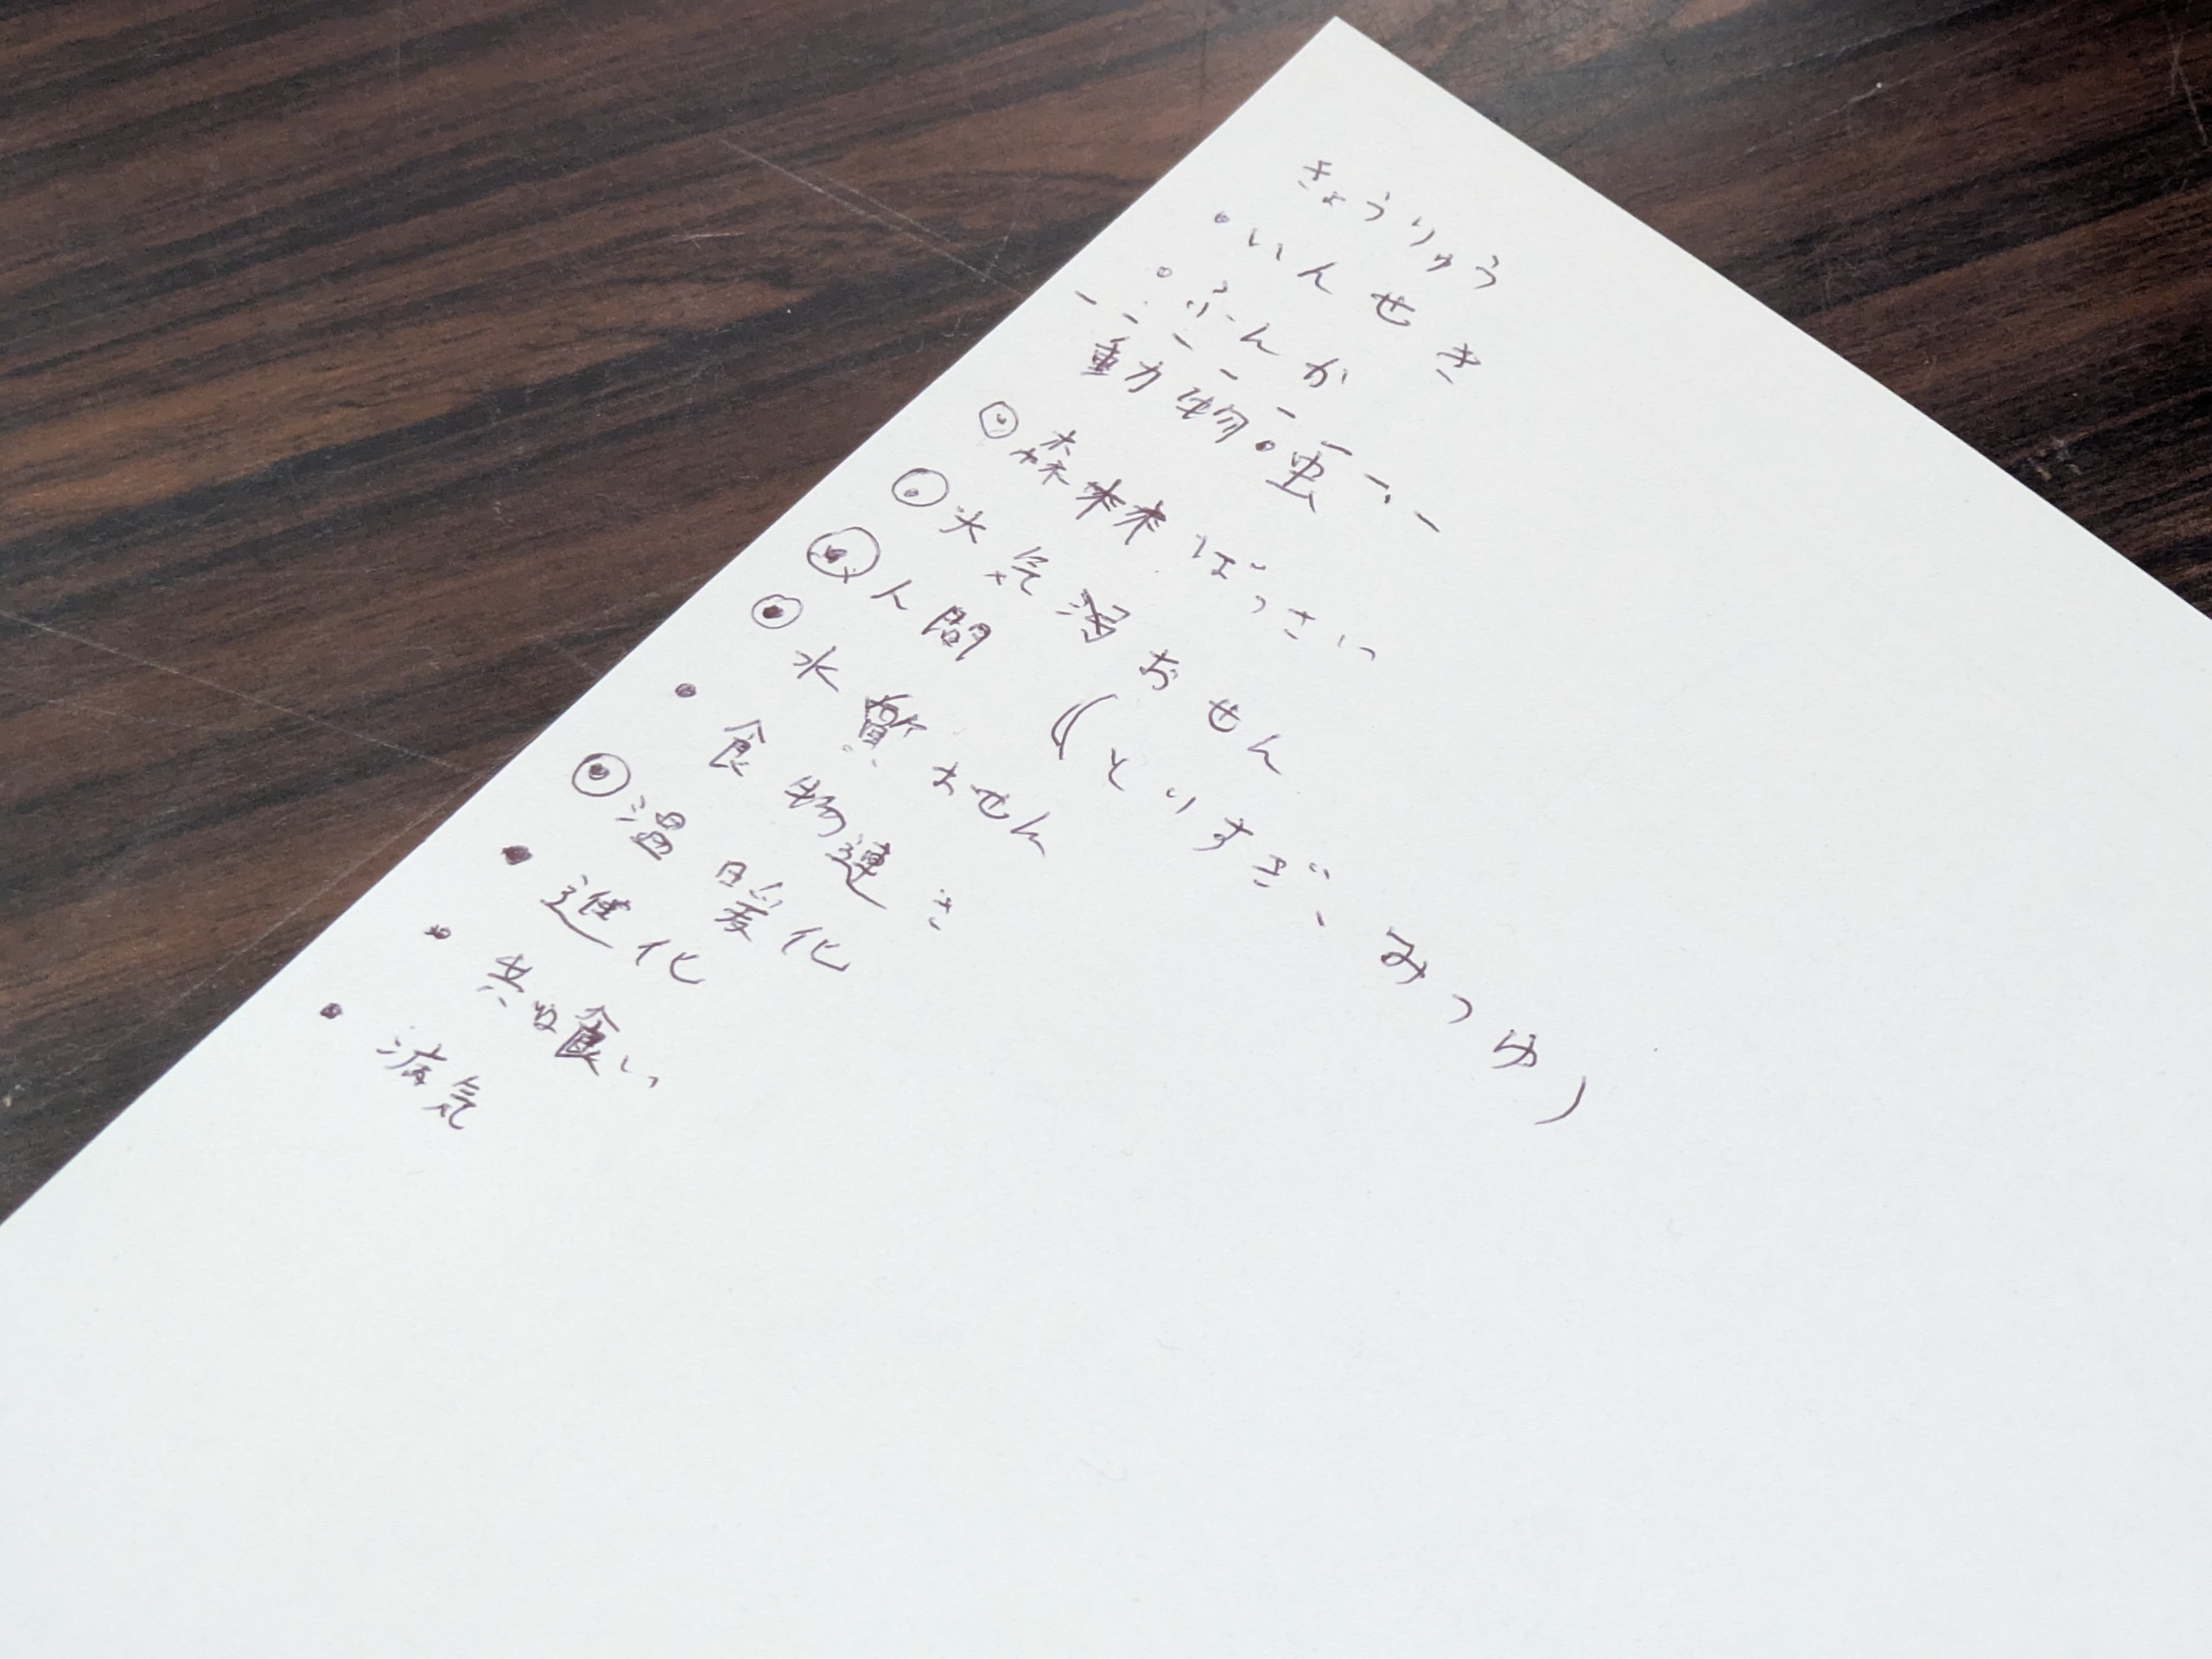 きょうりゅう
・いんせき
・ふんか
動物・虫
森林ばっさい
大気おせん
人間（とりすぎ、みつゆ）
水質おせん
・食物連さ
温暖化
・進化
・共食い
・病気